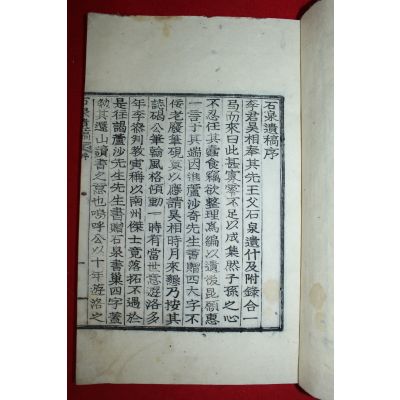 石泉遺稿序
李君昊相奉其先王父石泉遺什及附錄合一
弓而來曰此甚寂寥不足以成集然子孫之心
不忍任其蠹食竊欲整理爲編以遺後昆願惠
一言于其端因進蘆沙奇先生書贈四大字不
佞老廢筆硯莫以應請昊相時月來懇乃按其
誌碣公筆翰風格傾動一時有當世意遊洛多
年李參判教寅稱以南州傑士竟落拓不遇於
是往謁蘆沙先生先生書贈石泉書巢四字蓋
勉其還山讀書之意也嗚呼公以十年遊洛之
石泉遺稿 序